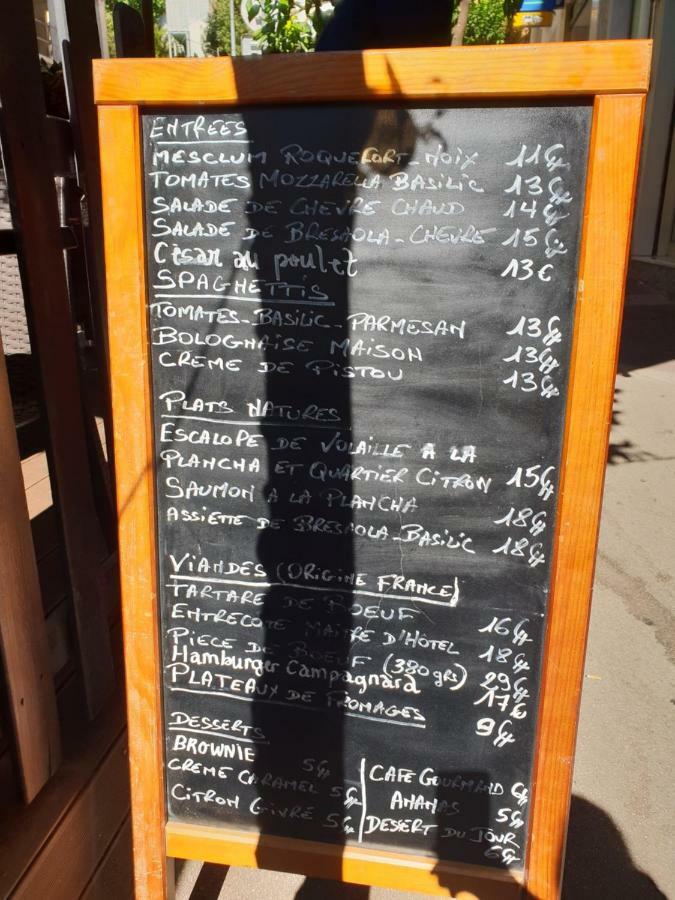 ENTREES
MESCLUM ROQUEFORT-NOIX 11€
TOMATES MOZZARELLA BASILIC 13€
SALADE DE CHEVRE CHAUD 14€
SALADE DE BRESAOLA-CHEVRE 15€
César au poulet 13€
SPAGHETTIS
TOMATES-BASILIC-PARMESAN 13€
BOLOGNAISE MAISON 13€
CREME DE PISTOU 13€
PLATS NATURES
ESCALOPE DE VOLAILLE A LA
PLANCHA ET QUARTIER CITRON 15€
SAUMON A LA PLANCHA 18€
ASSIETTE DE BRESAOLA-BASILIC 18€
VIANDES (ORIGINE FRANCE)
TARTARE DE BOEUF 16€
ENTRECOTE MAITRE D'HOTEL 18€
PIECE DE BOEUF (380grs) 29€
Hamburger Campagnard 17€
PLATEAUX DE FROMAGES 9€
DESSERTS
BROWNIE 5€
CREME CARAMEL 5€
CITRON GIVRÉ 5€
CAFE GOURMAND
ANANAS 5€
DESSERT DU JOUR
6€